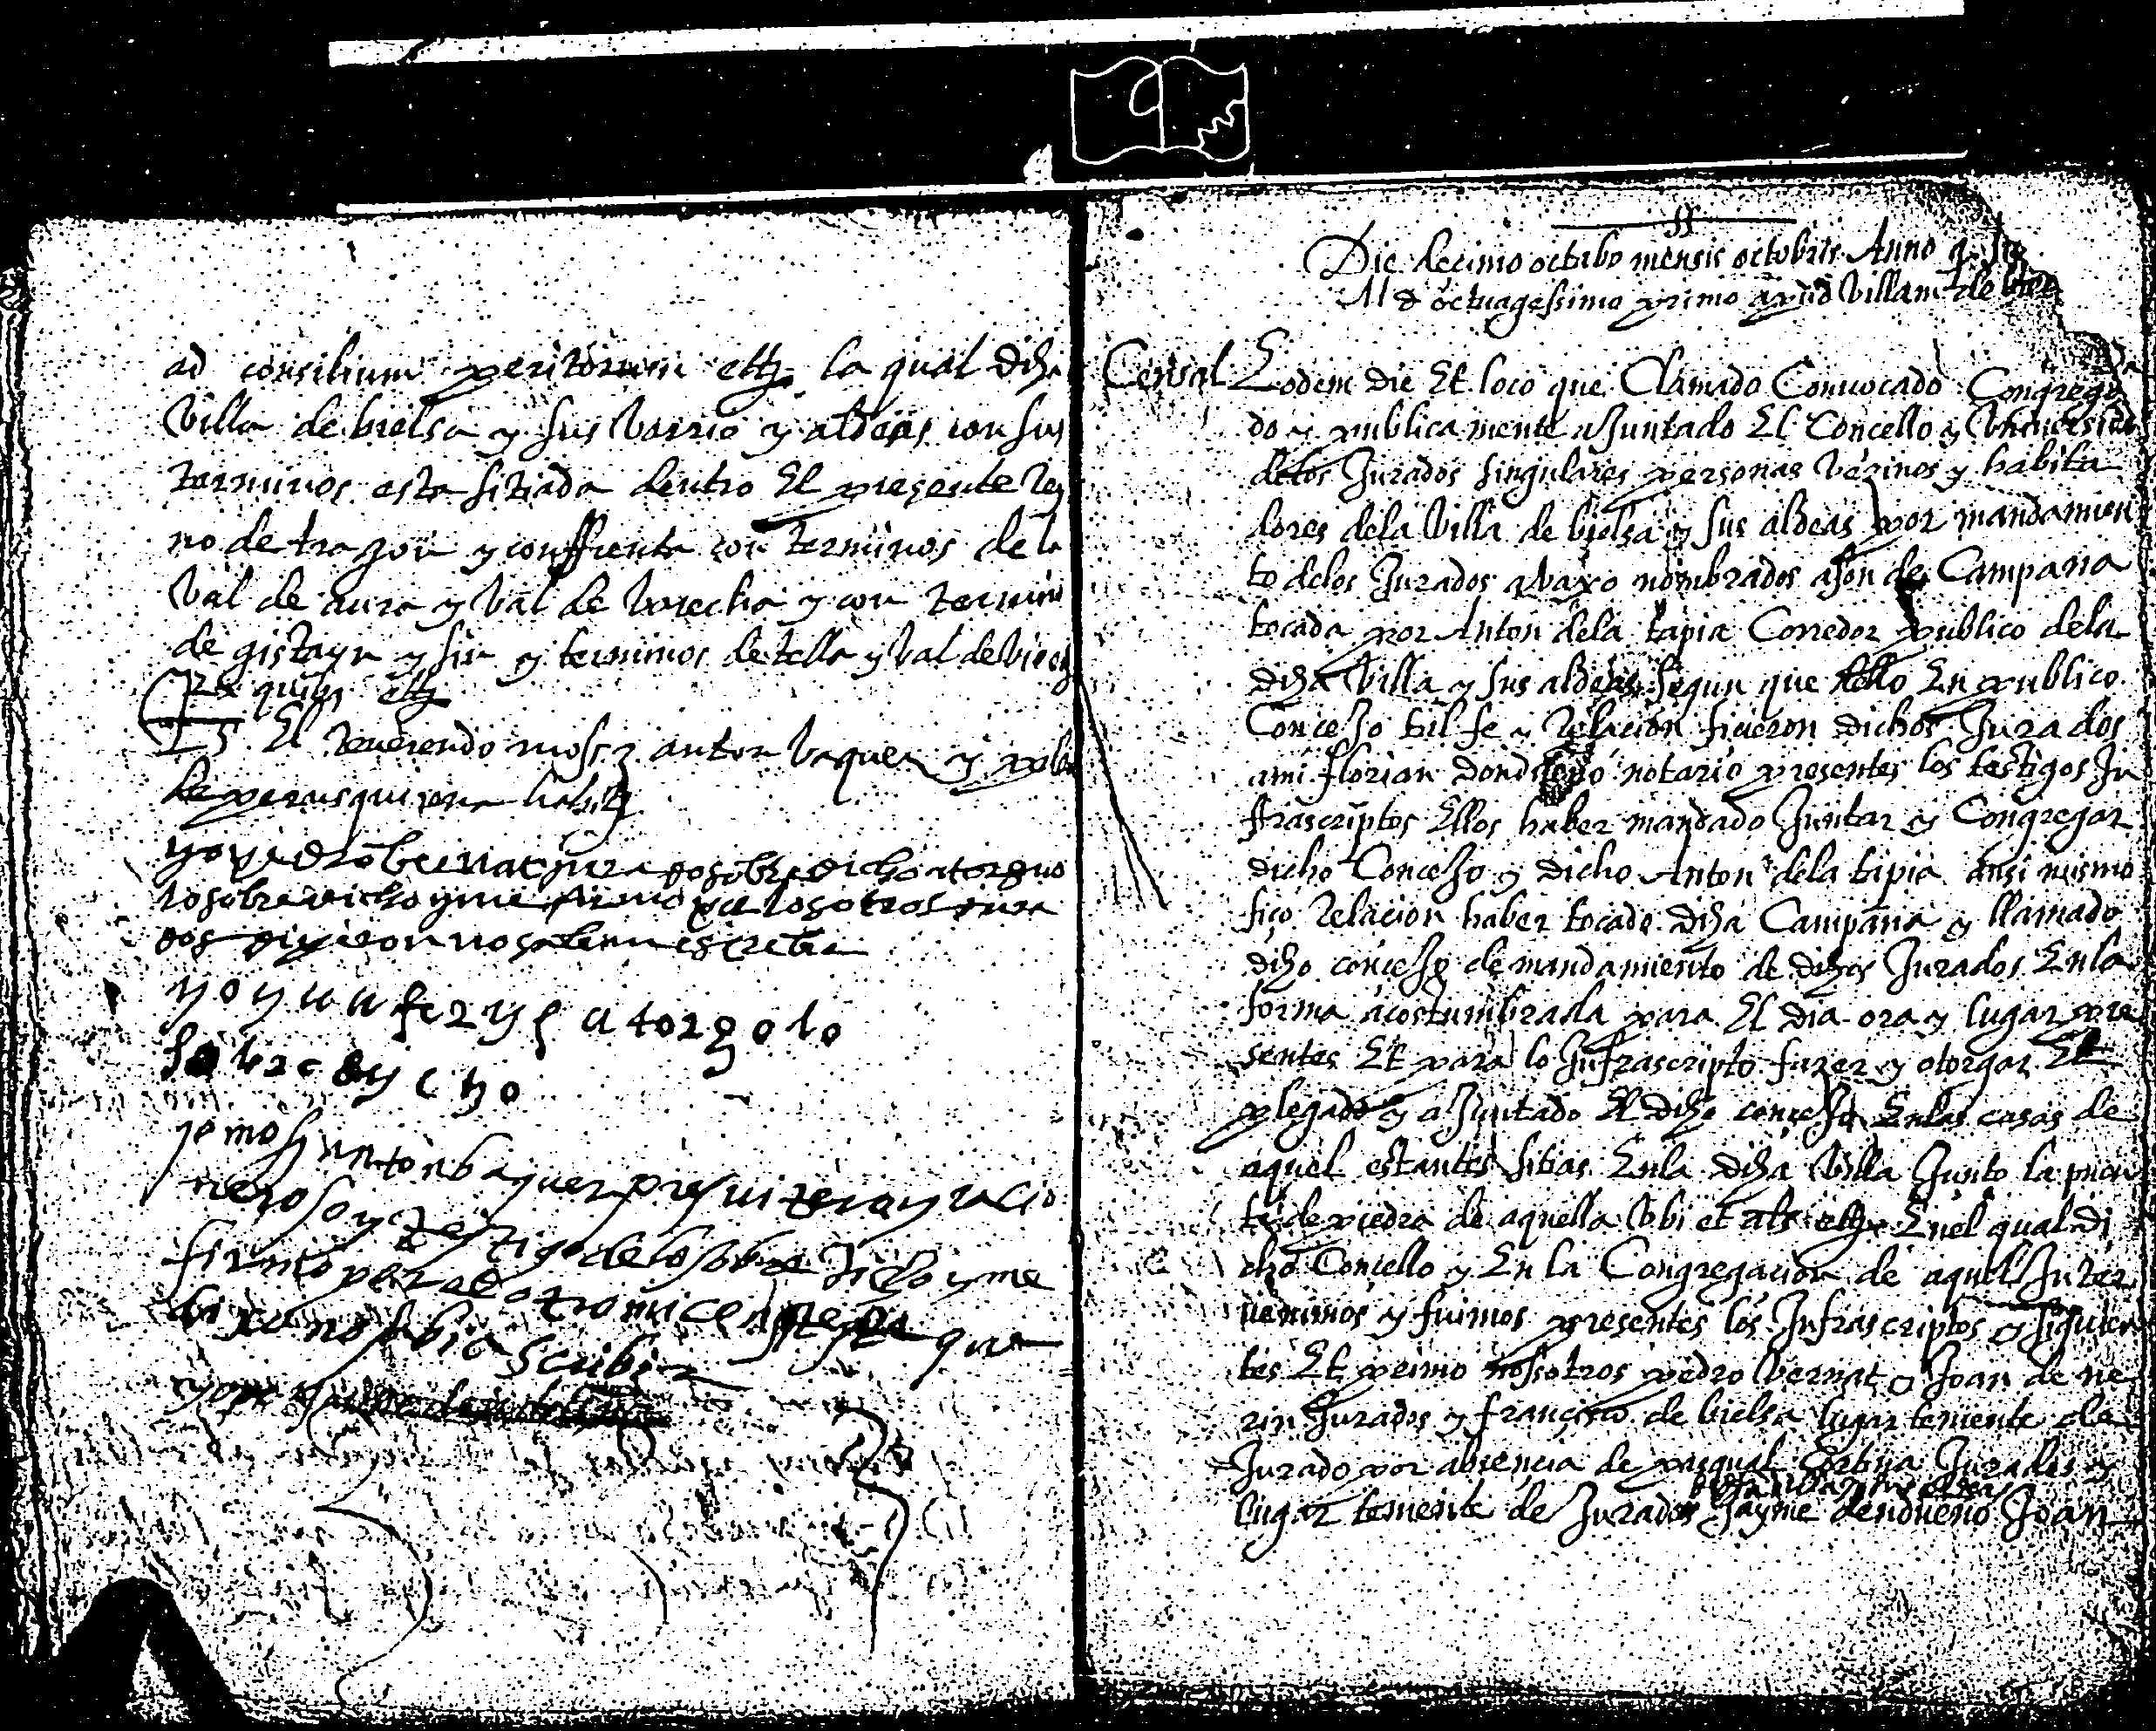 ad consilium peritorum etc. la qual dicha
Villa de bielsa y sus barrio y aldeas con sus
terminos esta sitiada dentro El presente Rey
no de Aragon y conffrenta con terminos de la
Val de aura y Val de varecha y con termino
de gistayn y sin y terminos de tella y Val de
Ex quibus etc.
Ts El reverendo mossen anton baquer y
habit.
yo pedro bernat jurado sobredicho atorguo
lo sobredicho y me firmo por los otros jura
dos dixieron no sabian escrebir
yo yuan feryç atorgo lo
sobredycho
yo mosen anton baquer presvitero y racio
nero soy testigo de lo sobre dicho y me
firmo por el otro mi contestes que
dixo no sabia scribir
Die decimo octabo mensis octobris Anno
M D octuagessimo primo apud Villam de
Censal Eodem die Et loco que Clamado Convocado Congrega
do y publicamente ajuntado El Concello y Vniversidad
delos Jurados singulares personas vezinos y habita
dores dela Villa de bielsa y sus aldeas por mandamien
to delos Jurados abaxo nombrados a son de Campana
tocada por Anton dela tapia Corredor publico dela
dicha Villa y sus aldeas segun que dello En publico
Concejo tal fe y relacion ficieron dichos Jurados
a mi florian notario presentes los testigos In
frascriptos Ellos haber mandado Juntar y Congregar
dicho Concejo y dicho Anton dela tapia ansi mismo
fiço relacion haber tocado dicha Campana y llamado
dicho concejo de mandamiento de dichos Jurados Enla
forma acostumbrada para El dia ora y lugar pre
sentes Et para lo Infrascripto fazer y otorgar Et
plegado y ajuntado El dicho concejo Enlas casas de
aquel estantes sitias Enla dicha Villa Junto la puen
te de piedra de aquella Vbi et als etc. Enel qual di
cho Concello y En la Congregacion de aquel Inter
venimos y fuimos presentes los Infrascriptos y siguien
tes Et primo nosotros pedro Vernat y Joan de ne
rin Jurados y françisco de bielsa lugar teniente de
Jurado por absencia de pasqual Cortina Jurados y
lugar teniente de Jurados Jayme Joan